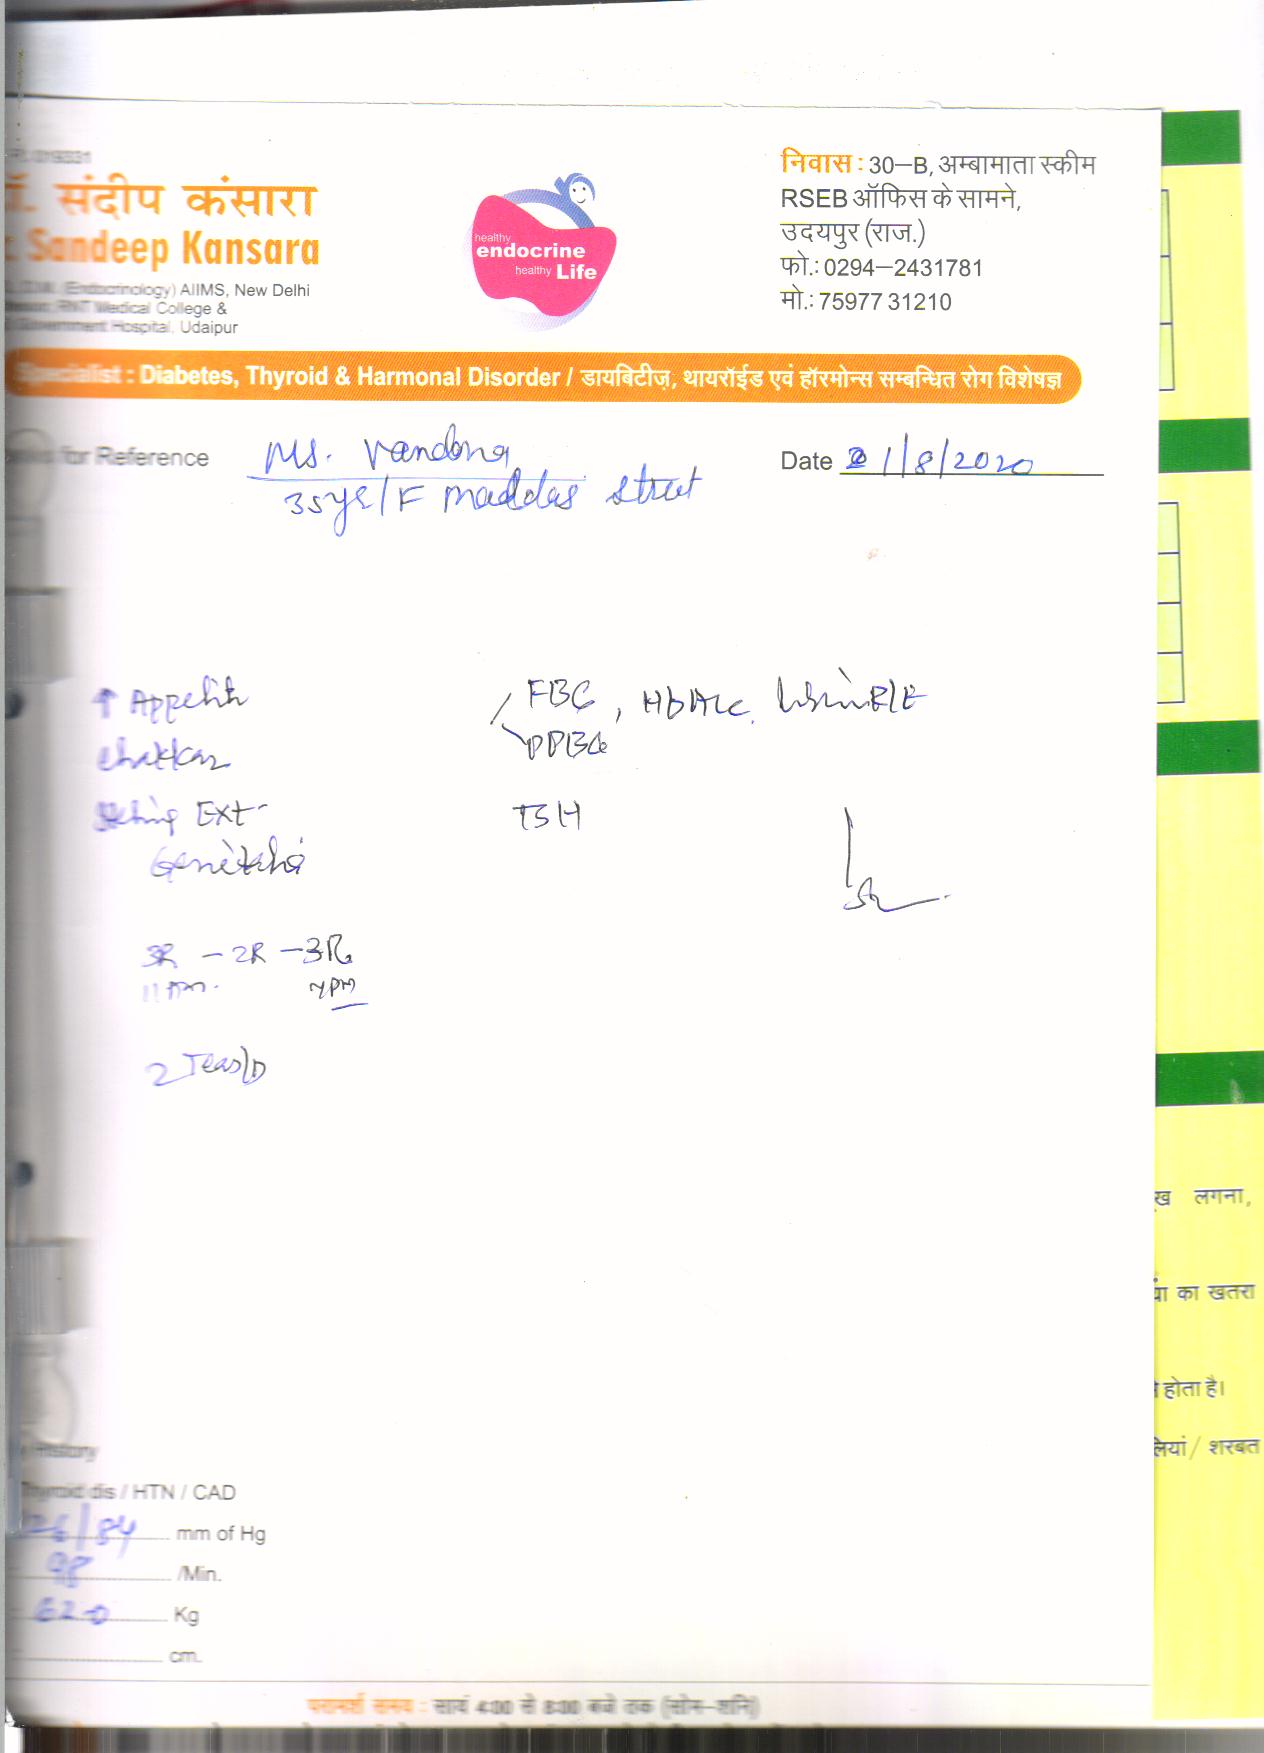 019331
डॉ. संदीप कंसारा
Sandeep Kansara
(Endocrinology) AIIMS, New Delhi
RNT Medical College &
Government Hospital, Udaipur
healthy
endocrine
healthy Life
निवास : 30–B, अम्बामाता स्कीम
RSEB ऑफिस के सामने,
उदयपुर (राज.)
फो.: 0294–2431781
मो.: 75977 31210
Specialist : Diabetes, Thyroid & Harmonal Disorder / डायबिटीज़, थायरॉईड एवं हॉरमोन्स सम्बन्धित रोग विशेषज्ञ
for Reference
Ms. Vandana
Date 21/8/2020
35yr/F Maddas Street
↑ Appetite
FBG, HbA1c, Urine R/E
chakkar
PPBG
Itching Ext-
TSH
Genitalia
3R – 2R – 3R
11 Am. 7PM
2 Teas/D
History
Thyroid dis / HTN / CAD
126/84 mm of Hg
98 /Min.
62.0 Kg
cm.
परामर्श समय : सायं 4:00 से 8:00 बजे तक (सोम–शनि)
लगना,
का खतरा
होता है।
शरबत